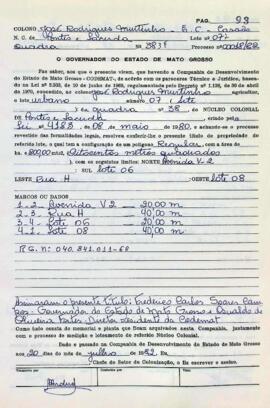 PAG. 93
COLONO José Rodrigues Murtinho - E.C. - Casado
N. C. de Pontes e Lacerda Lote nº 07
Quadra Nº 38
O GOVERNADOR DO ESTADO DE MATO GROSSO
Faz saber, aos que o presente virem, que havendo a Companhia de Desenvolvimento
do Estado de Mato Grosso - CODEMAT, de acôrdo com os pareceres Técnico e Jurídico, basea-
1970, expedido, ao colono José Rodrigues Murtinho agricultor,
o lote urbano número 07 sete
e quadra nº 38, DO NÚCLEO COLONIAL
DE Pontes e Lacerda
Lei nº 4183 08 de maio de 1980, achando-se o processo
revestido das formalidades legais, resolveu conferir-lhe o presente título de propriedade do
referido lote, o qual tem a configuração de um polígono Regular, com a área de
ha. 800,00 m2 Oitocentos metros quadrados
e com os seguintes limites: NORTE Avenida V-2
SUL lote 06
LESTE Rua H OESTE lote 08
MARCOS OU DADOS
1-2- Avenida V2 20,00 m
2-3- Rua H 40,00 m
3-4- lote 06 20,00 m
4-1- lote 08 40,00 m
Assinaram o presente título: Frederico Carlos Soares Cam
pos - Governador do Estado de Mato Grosso e Osvaldo de
Oliveira Fortes Diretor Presidente da Codemat
Como tudo consta do memorial e planta que ficam arquivados nesta Companhia, juntamente
com o processo de medição e loteamento do referido Núcleo Colonial.
Dado e passado na Companhia de Desenvolvimento do Estado de Mato Grosso
aos 20 dias do mês de julho de 1982. Eu
Chefe do Setor de Colonização, o fiz escrever e assino.